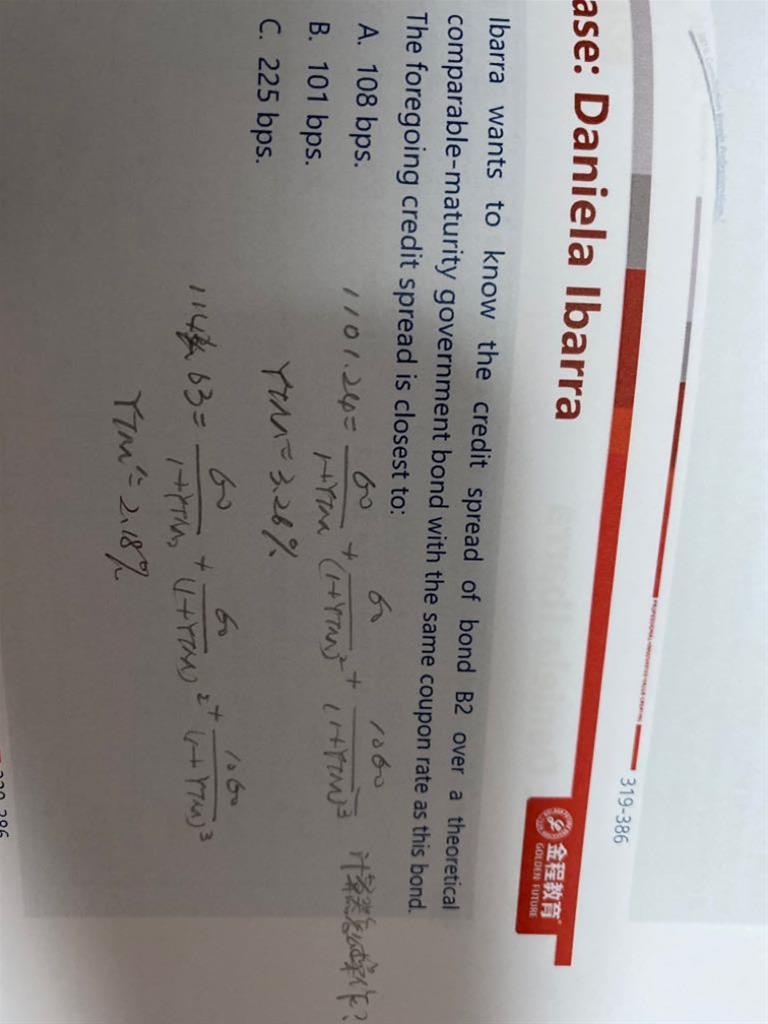 319-386
金程教育
GOLDEN FUTURE
PROFESSIONAL·INNOVATIVE·VALUE-CREATING
ase: Daniela Ibarra
Ibarra wants to know the credit spread of bond B2 over a theoretical
comparable-maturity government bond with the same coupon rate as this bond.
The foregoing credit spread is closest to:
A. 108 bps.
B. 101 bps.
C. 225 bps.
1101.24 = 60/(1+YTM) + 60/(1+YTM)² + 1060/(1+YTM)³ 计算器怎么操作?
YTM = 3.26%
63 = 60/(1+YTM) + 60/(1+YTM)² + 1060/(1+YTM)³
YTM' = 2.18%